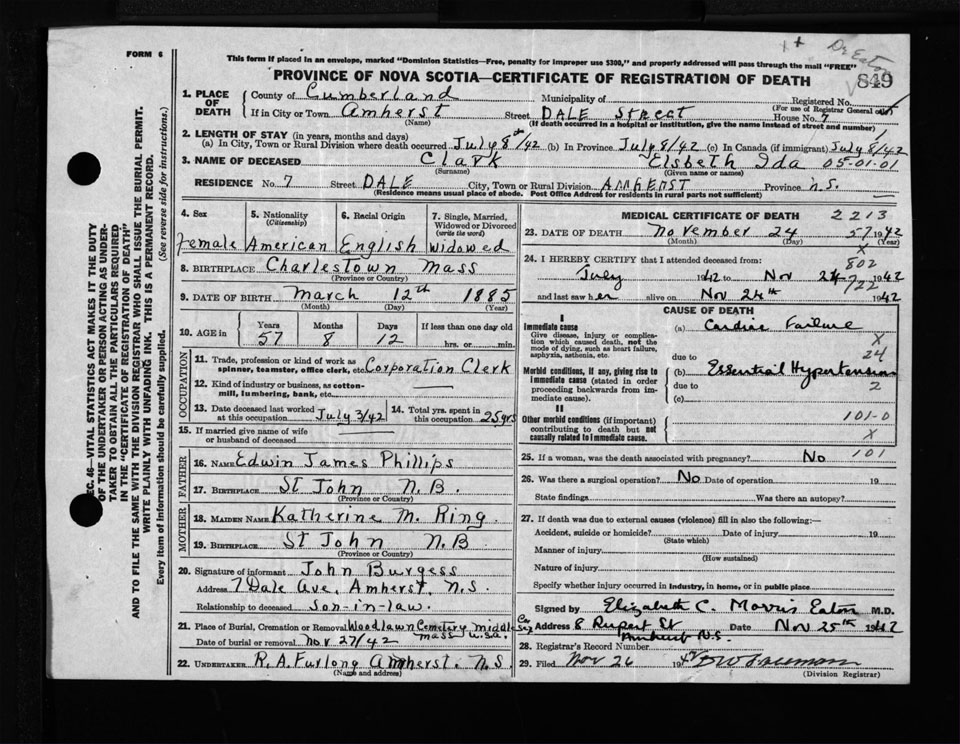 FORM 6
1+ Dr Eaton
This form if placed in an envelope, marked "Dominion Statistics—Free, penalty for improper use $300," and properly addressed will pass through the mail "FREE"
PROVINCE OF NOVA SCOTIA—CERTIFICATE OF REGISTRATION OF DEATH
849
1. PLACE OF DEATH
County of Cumberland Municipality of Registered No.
(For use of Registrar General only)
If in City or Town Amherst Street DALE Street House No. 7
(Name) (If death occurred in a hospital or institution, give the name instead of street and number)
2. LENGTH OF STAY (in years, months and days)
(a) In City, Town or Rural Division where death occurred July 8th/42 (b) In Province July 8/42 (c) In Canada (if immigrant) July 8/42
3. NAME OF DECEASED Clark Elsbeth Ida 05-01-01
(Surname) (Given name or names)
RESIDENCE No. 7 Street DALE City, Town or Rural Division AMHERST Province N.S.
(Residence means usual place of abode. Post Office Address for residents in rural parts not sufficient)
4. Sex 5. Nationality (Citizenship) 6. Racial Origin 7. Single, Married, Widowed or Divorced (write the word)
female American English widowed
8. BIRTHPLACE Charlestown Mass
(Province or Country)
9. DATE OF BIRTH March 12th 1885
(Month) (Day) (Year)
10. AGE in Years Months Days If less than one day old
57 8 12 hrs. or min.
OCCUPATION
11. Trade, profession or kind of work as spinner, teamster, office clerk, etc. Corporation Clerk
12. Kind of industry or business, as cotton-mill, lumbering, bank, etc.
13. Date deceased last worked at this occupation July 3/42 14. Total yrs. spent in this occupation 25 yrs
15. If married give name of wife or husband of deceased
FATHER
16. NAME Edwin James Phillips
17. BIRTHPLACE St John N.B.
MOTHER
18. MAIDEN NAME Katherine M. Ring
19. BIRTHPLACE St John N.B
(Province or Country)
20. Signature of informant John Burgess
Address 7 Dale Ave, Amherst, N.S.
Relationship to deceased Son-in-law.
21. Place of Burial, Cremation or Removal Woodlawn Cemetery middle
Mass U.S.A.
Date of burial or removal Nov 27/42
22. UNDERTAKER R.A. Furlong Amherst. N.S.
(Name and address)
MEDICAL CERTIFICATE OF DEATH 2213
23. DATE OF DEATH November 24 57 1942
(Month) (Day) (Year)
X
24. I HEREBY CERTIFY that I attended deceased from: 802
July 1942 to Nov 24 1942
722
and last saw her alive on Nov 24th 1942
CAUSE OF DEATH
I
Immediate cause
Give disease, injury or complication which caused death, not the mode of dying, such as heart failure, asphyxia, asthenia, etc.
(a) Cardiac Failure
X
due to 24
Morbid conditions, if any, giving rise to immediate cause (stated in order proceeding backwards from immediate cause).
(b) Essential Hypertension
due to 2
(c)
II
Other morbid conditions (if important) contributing to death but not causally related to immediate cause.
101-0
X
25. If a woman, was the death associated with pregnancy? No 101
26. Was there a surgical operation? No Date of operation 19
State findings Was there an autopsy?
27. If death was due to external causes (violence) fill in also the following:—
Accident, suicide or homicide? Date of injury 19
(State which)
Manner of injury
(How sustained)
Nature of injury
Specify whether injury occurred in industry, in home, or in public place
Signed by Elizabeth C. Morris Eaton M.D.
Address 8 Rupert St Date Nov 25th 1942
Amherst N.S.
28. Registrar's Record Number
29. Filed Nov 26 1942
(Division Registrar)
SEC. 46—VITAL STATISTICS ACT MAKES IT THE DUTY
OF THE UNDERTAKER OR PERSON ACTING AS UNDER-
TAKER TO OBTAIN ALL THE PARTICULARS REQUIRED
IN THE "CERTIFICATE OF REGISTRATION OF DEATH"
AND TO FILE THE SAME WITH THE DIVISION REGISTRAR WHO SHALL ISSUE THE BURIAL PERMIT.
WRITE PLAINLY WITH UNFADING INK. THIS IS A PERMANENT RECORD.
Every item of information should be carefully supplied. (See reverse side for instructions.)